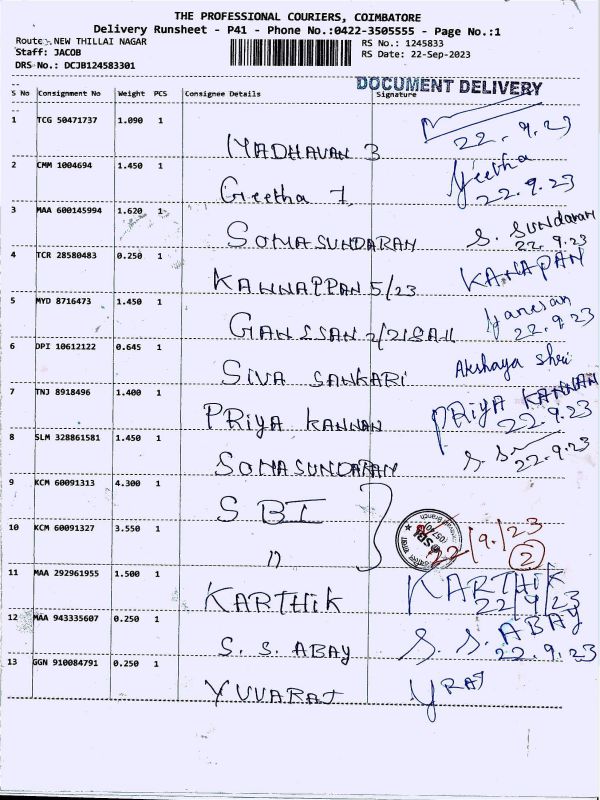 THE PROFESSIONAL COURIERS, COIMBATORE
Delivery Runsheet - P41 - Phone No.:0422-3505555 - Page No.:1
Route: NEW THILLAI NAGAR
RS No.: 1245833
Staff: JACOB
RS Date: 22-Sep-2023
DRS No.: DCJB124583301
DOCUMENT DELIVERY
S No Consignment No Weight PCS Consignee Details Signature
1 TCG 50471737 1.090 1
22.9.23
MADHAVAN 3
2 CMM 1004694 1.450 1
Geetha 1 Geetha
22.9.23
3 MAA 600145994 1.620 1
SOMASUNDARAN S. SUNDARAM
22.9.23
4 TCR 28580483 0.250 1
KANNAPPAN 5/23 KANAPAN
5 MYD 8716473 1.450 1
22.9.23
6 DPI 10612122 0.645 1
SIVA SANKARI Akshaya Shri
7 TNJ 8918496 1.400 1
PRIYA KANNAN PRIYA KANNAN
22.9.23
8 SLM 328861581 1.450 1
SOMASUNDARAN S. S
22.9.23
9 KCM 60091313 4.300 1
SBI
10 KCM 60091327 3.550 1
22/9/23
SBI
2
11 MAA 292961955 1.500 1
KARTHIK KARTHIK
22/9/23
12 MAA 943335607 0.250 1
S. S. ABAY S. S. ABAY
22.9.23
13 GGN 910084791 0.250 1
YUVARAJ YRAJ